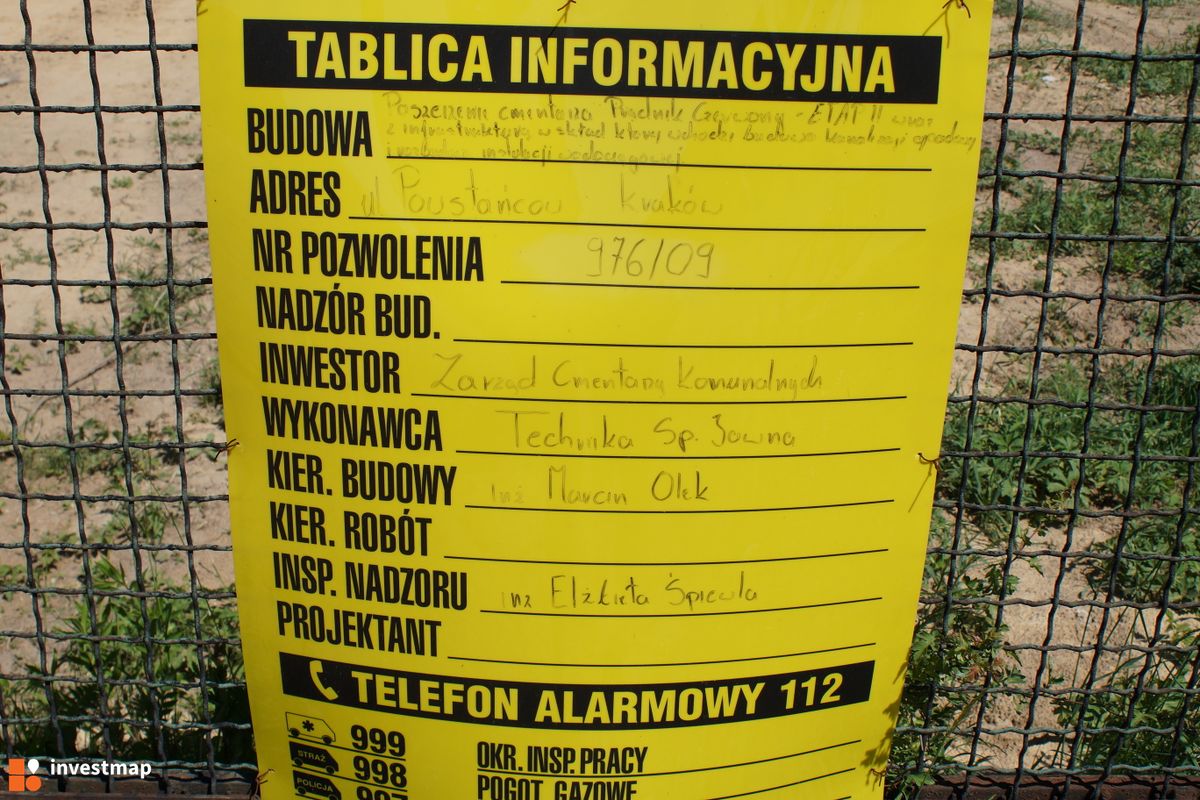 TABLICA INFORMACYJNA
BUDOWA Poszerzenie cmentarza Prądnik Czerwony - ETAP II wraz
z infrastrukturą w skład której wchodzi budowa kanalizacji opadowej
i rozbudowa instalacji wodociągowej
ADRES ul Powstańców Kraków
NR POZWOLENIA 976/09
NADZÓR BUD.
INWESTOR Zarząd Cmentarzy Komunalnych
WYKONAWCA Technika Sp. Jawna
KIER. BUDOWY inż Marcin Olek
KIER. ROBÓT
INSP. NADZORU inż Elżbieta
PROJEKTANT
TELEFON ALARMOWY 112
999
STRAŻ 998
POLICJA 997
OKR. INSP. PRACY
POGOT. GAZOWE
investmap